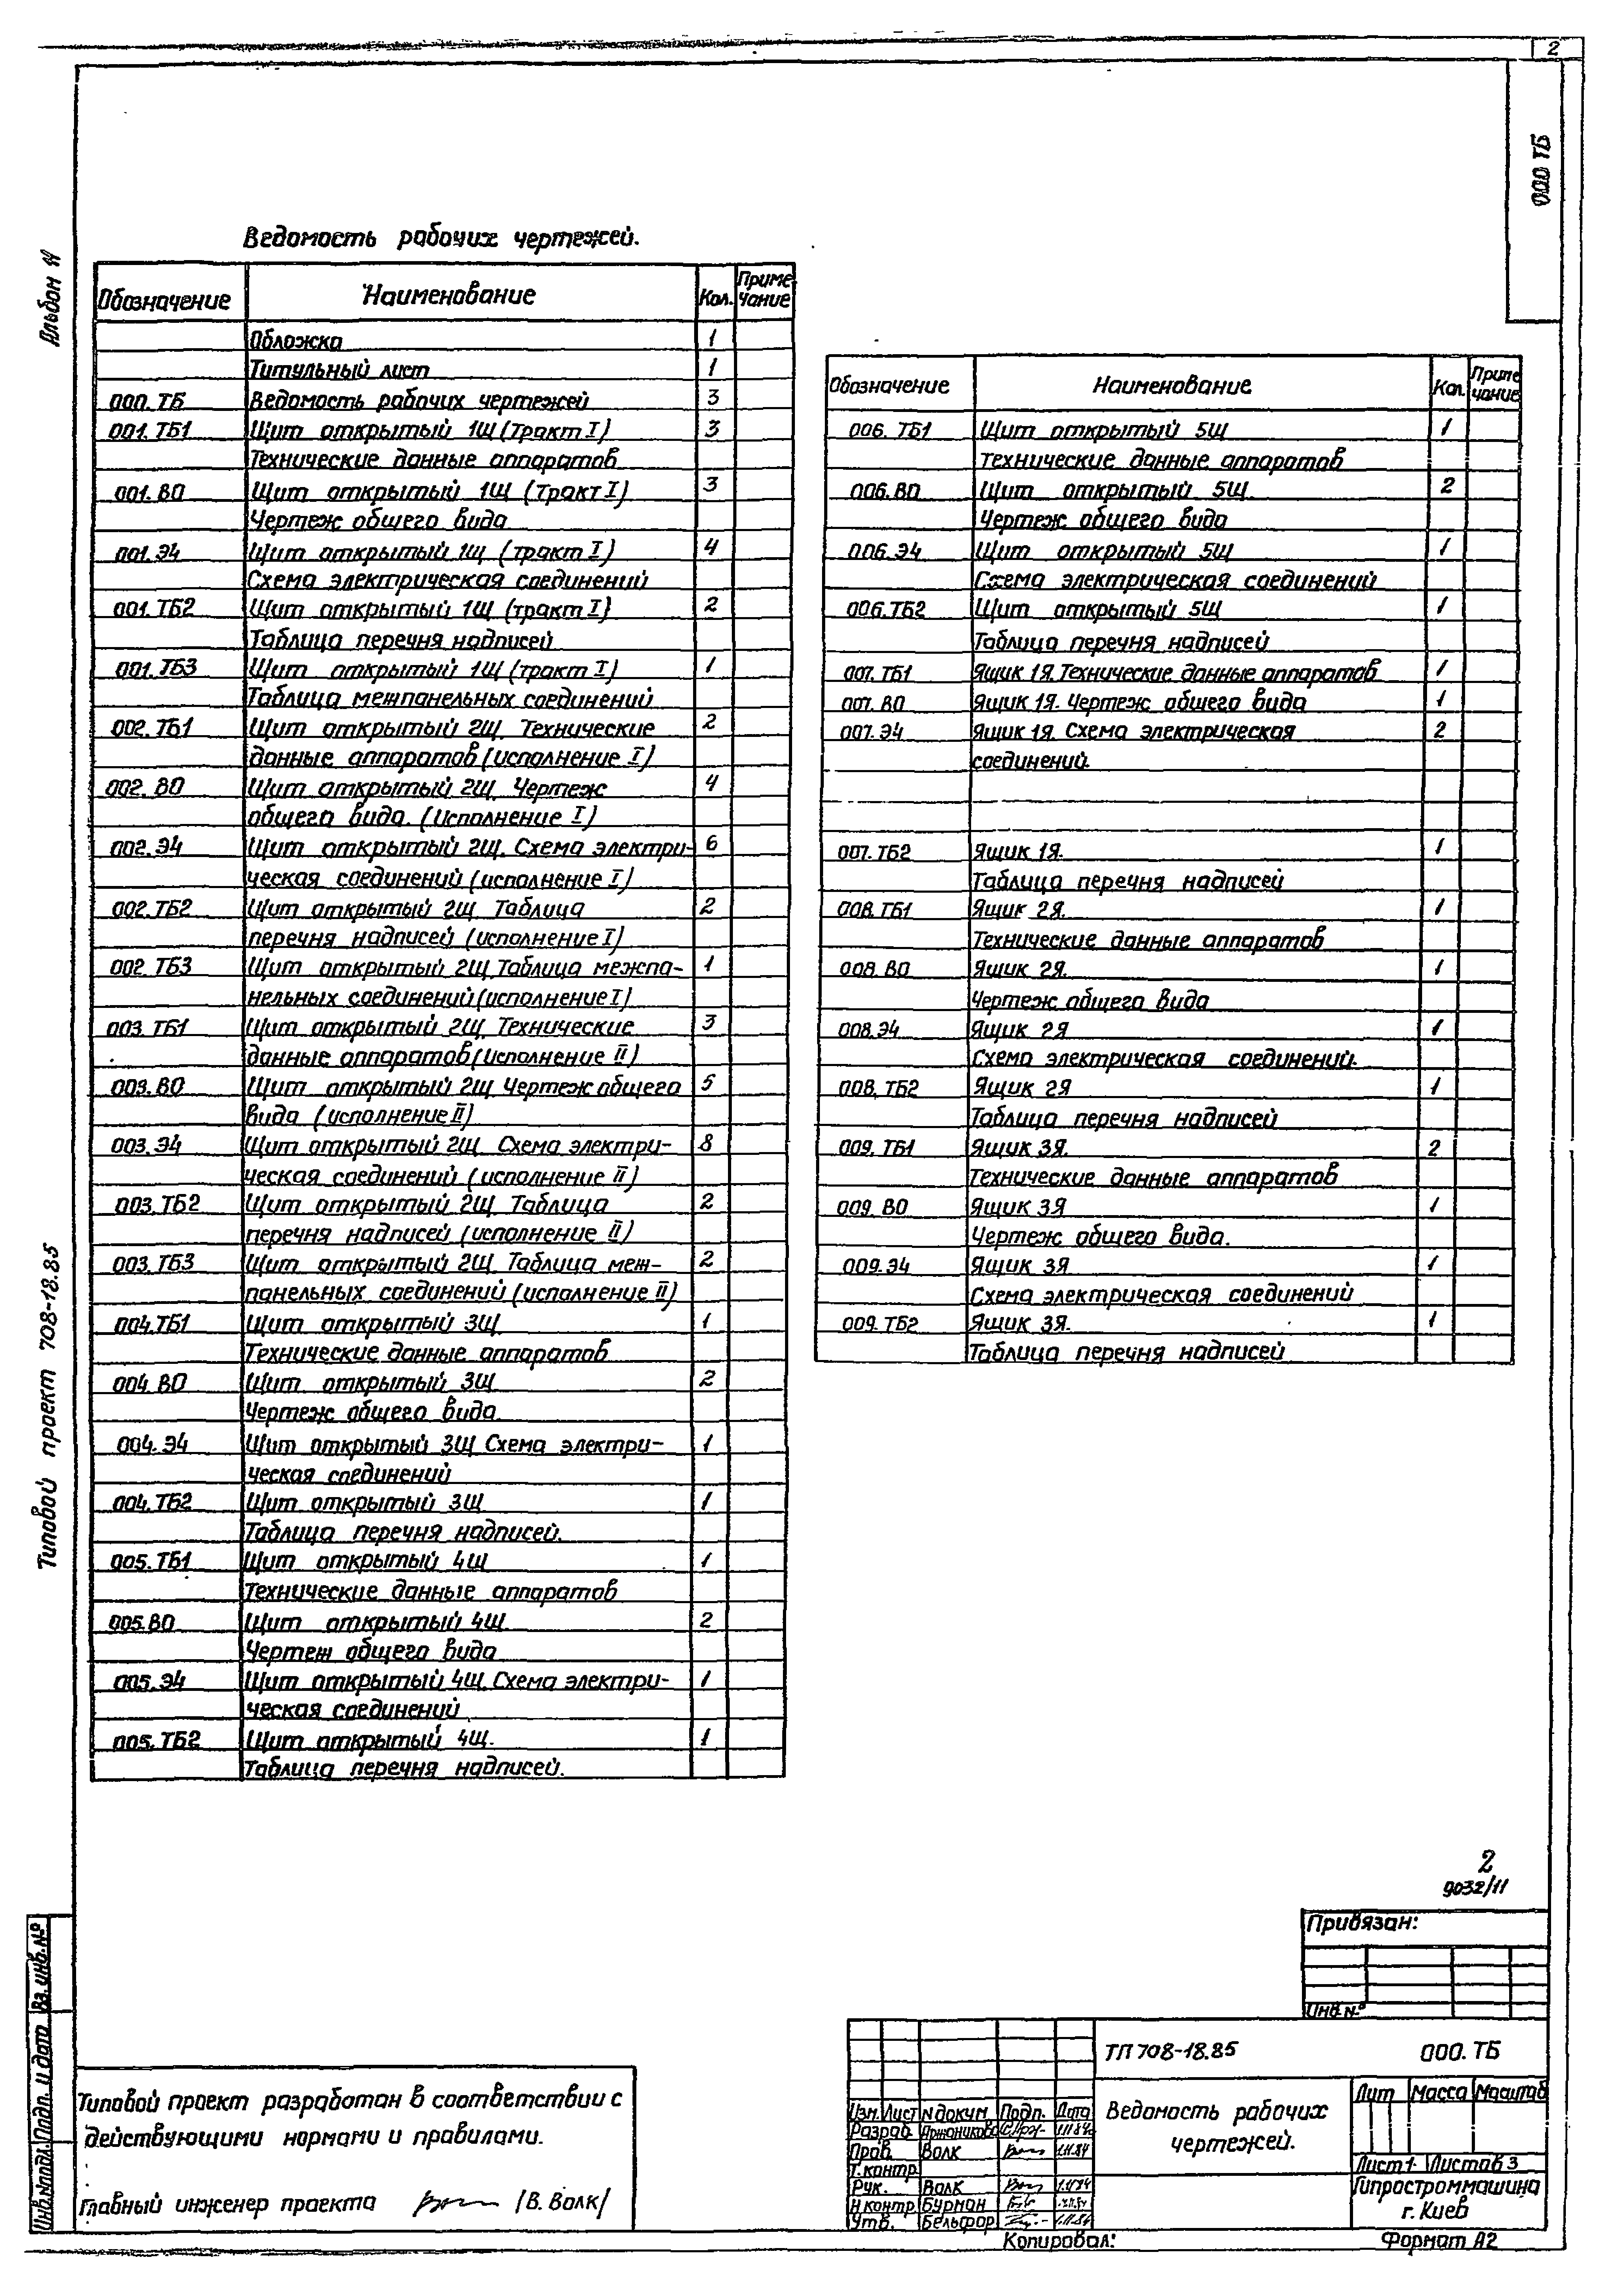 2
000 ТБ
Альбом 11
Типовой проект 708-18.85
Ведомость рабочих чертежей.
Обозначение Наименование Кол. Приме-чание
Обложка 1
Титульный лист 1
000. ТБ Ведомость рабочих чертежей 3
001. ТБ1 Щит открытый 1Щ (тракт I) 3
Технические данные аппаратов
001. ВО Щит открытый 1Щ (тракт I) 3
Чертеж общего вида
001.Э4 Щит открытый 1Щ (тракт I) 4
Схема электрическая соединений
001. ТБ2 Щит открытый 1Щ (тракт I) 2
Таблица перечня надписей
001. ТБ3 Щит открытый 1Щ (тракт I) 1
Таблица межпанельных соединений
002. ТБ1 Щит открытый 2Щ. Технические 2
данные аппаратов (исполнение I)
002. ВО Щит открытый 2Щ. Чертеж 4
общего вида. (Исполнение I)
002. Э4 Щит открытый 2Щ. Схема электри- 6
ческая соединений (исполнение I)
002. ТБ2 Щит открытый 2Щ. Таблица 2
перечня надписей (исполнение I)
002. ТБ3 Щит открытый 2Щ. Таблица межпа- 1
нельных соединений (исполнение I)
003. ТБ1 Щит открытый 2Щ. Технические 3
данные аппаратов (исполнение II)
003. ВО Щит открытый 2Щ. Чертеж общего 5
вида (исполнение II)
003. Э4 Щит открытый 2Щ. Схема электри- 8
ческая соединений (исполнение II)
003. ТБ2 Щит открытый 2Щ. Таблица 2
перечня надписей (исполнение II)
003. ТБ3 Щит открытый 2Щ. Таблица меж- 2
панельных соединений (исполнение II)
004. ТБ1 Щит открытый 3Щ 1
Технические данные аппаратов
004. ВО Щит открытый 3Щ 2
Чертеж общего вида.
004. Э4 Щит открытый 3Щ Схема электри- 1
ческая соединений
004. ТБ2 Щит открытый 3Щ 1
Таблица перечня надписей.
005. ТБ1 Щит открытый 4Щ 1
Технические данные аппаратов
005. ВО Щит открытый 4Щ. 2
Чертеж общего вида
005. Э4 Щит открытый 4Щ. Схема электри- 1
ческая соединений
005. ТБ2 Щит открытый 4Щ. 1
Таблица перечня надписей.
Обозначение Наименование Кол. Приме чание
006. ТБ1 Щит открытый 5Щ 1
технические данные аппаратов
006. ВО Щит открытый 5Щ. 2
Чертеж общего вида
006. Э4 Щит открытый 5Щ 1
Схема электрическая соединений
006. ТБ2 Щит открытый 5Щ 1
Таблица перечня надписей
007. ТБ1 Ящик 1Я. Технические данные аппаратов 1
007. ВО Ящик 1Я. Чертеж общего вида 1
007. Э4 Ящик 1Я. Схема электрическая 2
соединений.
007. ТБ2 Ящик 1Я. 1
Таблица перечня надписей
008. ТБ1 Ящик 2Я. 1
Технические данные аппаратов
008. ВО Ящик 2Я. 1
Чертеж общего вида
008. Э4 Ящик 2Я 1
Схема электрическая соединений.
008. ТБ2 Ящик 2Я 1
Таблица перечня надписей
009. ТБ1 Ящик 3Я. 2
Технические данные аппаратов
009. ВО Ящик 3Я 1
Чертеж общего вида.
009. Э4 Ящик 3Я 1
Схема электрическая соединений
009. ТБ2 Ящик 3Я. 1
Таблица перечня надписей
2
9032/11
Привязан:
Инв. №
Инв.№подл. Подп. и дата Вз. инв. №
Типовой проект разработан в соответствии с
действующими нормами и правилами.
Главный инженер проекта /В. Волк/
ТП 708-18.85 000. ТБ
Ведомость рабочих
чертежей.
Лит Масса Масштаб
Лист 1 Листов 3
Гипростроммашина
г. Киев
Изм. Лист N докум Подп. Дата
Разраб.
Пров. Волк
Т. контр.
Рук. Волк
Н контр Бурман
Утв. Бельфор
Копировал: Формат А2